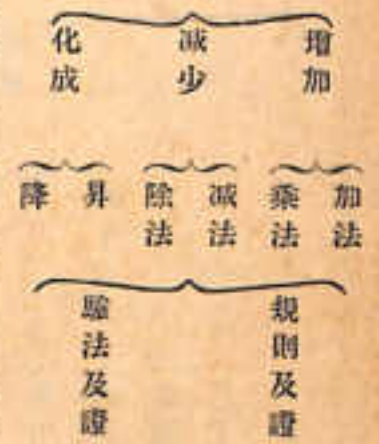 增加
减少
化成
加法
乘法
减法
除法
昇
降
規則及證
驗法及證